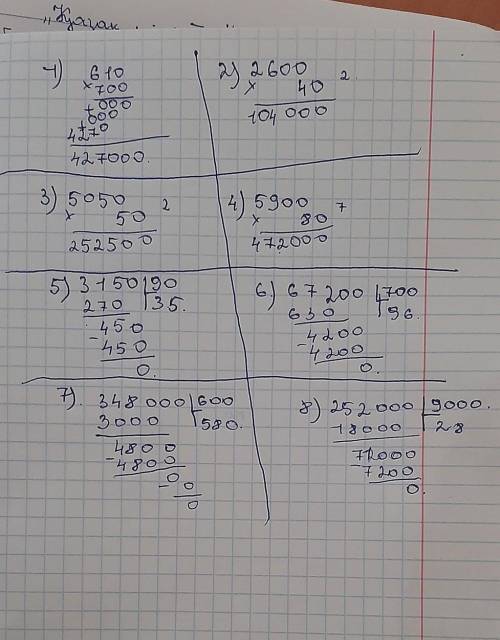 „Қазақ
1) 610
× 700
+ 000
+ 000
427 0
427000.
2) 2600 2
× 40
104000
3) 5050 2
× 50
252500
4) 5900 7
× 80
472000
5) 3150 90
270 35.
450
- 450
0.
6) 67200 700
630 96.
4200
- 4200
0.
7). 348000 600
3000 580.
4800
- 4800
0
- 0
0
8) 252000 9000.
18000 28
72000
- 7200
0.